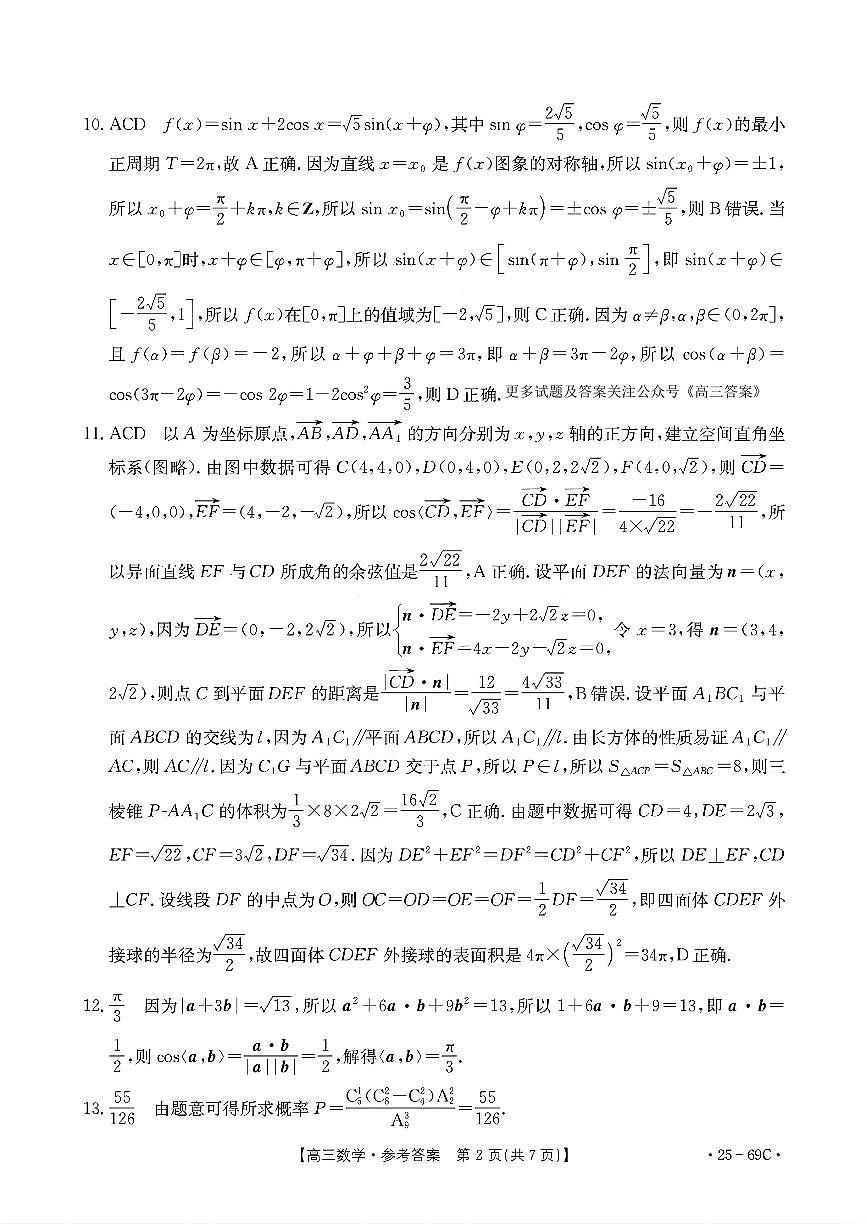 10. ACD　f(x)=sin x+2cos x=√5sin(x+φ),其中 sin φ=2√5/5,cos φ=√5/5,则 f(x)的最小
正周期 T=2π,故 A 正确.因为直线 x=x₀ 是 f(x)图象的对称轴,所以 sin(x₀+φ)=±1,
所以 x₀+φ=π/2+kπ,k∈Z,所以 sin x₀=sin(π/2-φ+kπ)=±cos φ=±√5/5,则 B 错误.当
x∈[0,π]时,x+φ∈[φ,π+φ],所以 sin(x+φ)∈[sin(π+φ),sin π/2],即 sin(x+φ)∈
[-2√5/5,1],所以 f(x)在[0,π]上的值域为[-2,√5],则 C 正确.因为 α≠β,α,β∈(0,2π],
且 f(α)=f(β)=-2,所以 α+φ+β+φ=3π,即 α+β=3π-2φ,所以 cos(α+β)=
cos(3π-2φ)=-cos 2φ=1-2cos²φ=3/5,则 D 正确.更多试题及答案关注公众号《高三答案》
11. ACD　以 A 为坐标原点,AB→,AD→,AA₁→ 的方向分别为 x,y,z 轴的正方向,建立空间直角坐
标系(图略).由图中数据可得 C(4,4,0),D(0,4,0),E(0,2,2√2),F(4,0,√2),则 CD→=
(-4,0,0),EF→=(4,-2,-√2),所以 cos⟨CD→,EF→⟩=CD→·EF→/|CD→||EF→|=-16/4×√22=-2√22/11,所
以异面直线 EF 与 CD 所成角的余弦值是2√22/11,A 正确.设平面 DEF 的法向量为 n=(x,
y,z),因为 DE→=(0,-2,2√2),所以{n·DE→=-2y+2√2z=0, n·EF→=4x-2y-√2z=0,令 x=3,得 n=(3,4,
2√2),则点 C 到平面 DEF 的距离是|CD→·n|/|n|=12/√33=4√33/11,B 错误.设平面 A₁BC₁ 与平
面 ABCD 的交线为 l,因为 A₁C₁∥平面 ABCD,所以 A₁C₁∥l.由长方体的性质易证 A₁C₁∥
AC,则 AC∥l.因为 C₁G 与平面 ABCD 交于点 P,所以 P∈l,所以 S△ACP=S△ABC=8,则三
棱锥 P-AA₁C 的体积为1/3×8×2√2=16√2/3,C 正确.由题中数据可得 CD=4,DE=2√3,
EF=√22,CF=3√2,DF=√34.因为 DE²+EF²=DF²=CD²+CF²,所以 DE⊥EF,CD
⊥CF.设线段 DF 的中点为 O,则 OC=OD=OE=OF=1/2DF=√34/2,即四面体 CDEF 外
接球的半径为√34/2,故四面体 CDEF 外接球的表面积是 4π×(√34/2)²=34π,D 正确.
12. π/3　因为|a+3b|=√13,所以 a²+6a·b+9b²=13,所以 1+6a·b+9=13,即 a·b=
1/2,则 cos⟨a,b⟩=a·b/|a||b|=1/2,解得⟨a,b⟩=π/3.
13. 55/126　由题意可得所求概率 P=C¹₅(C²₈-C²₄)A²₂/A³₉=55/126.
【高三数学·参考答案　第 2 页(共 7 页)】　·25-69C·